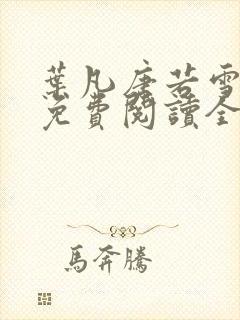 葉凡唐若雪
免費閱讀全
馬奔騰